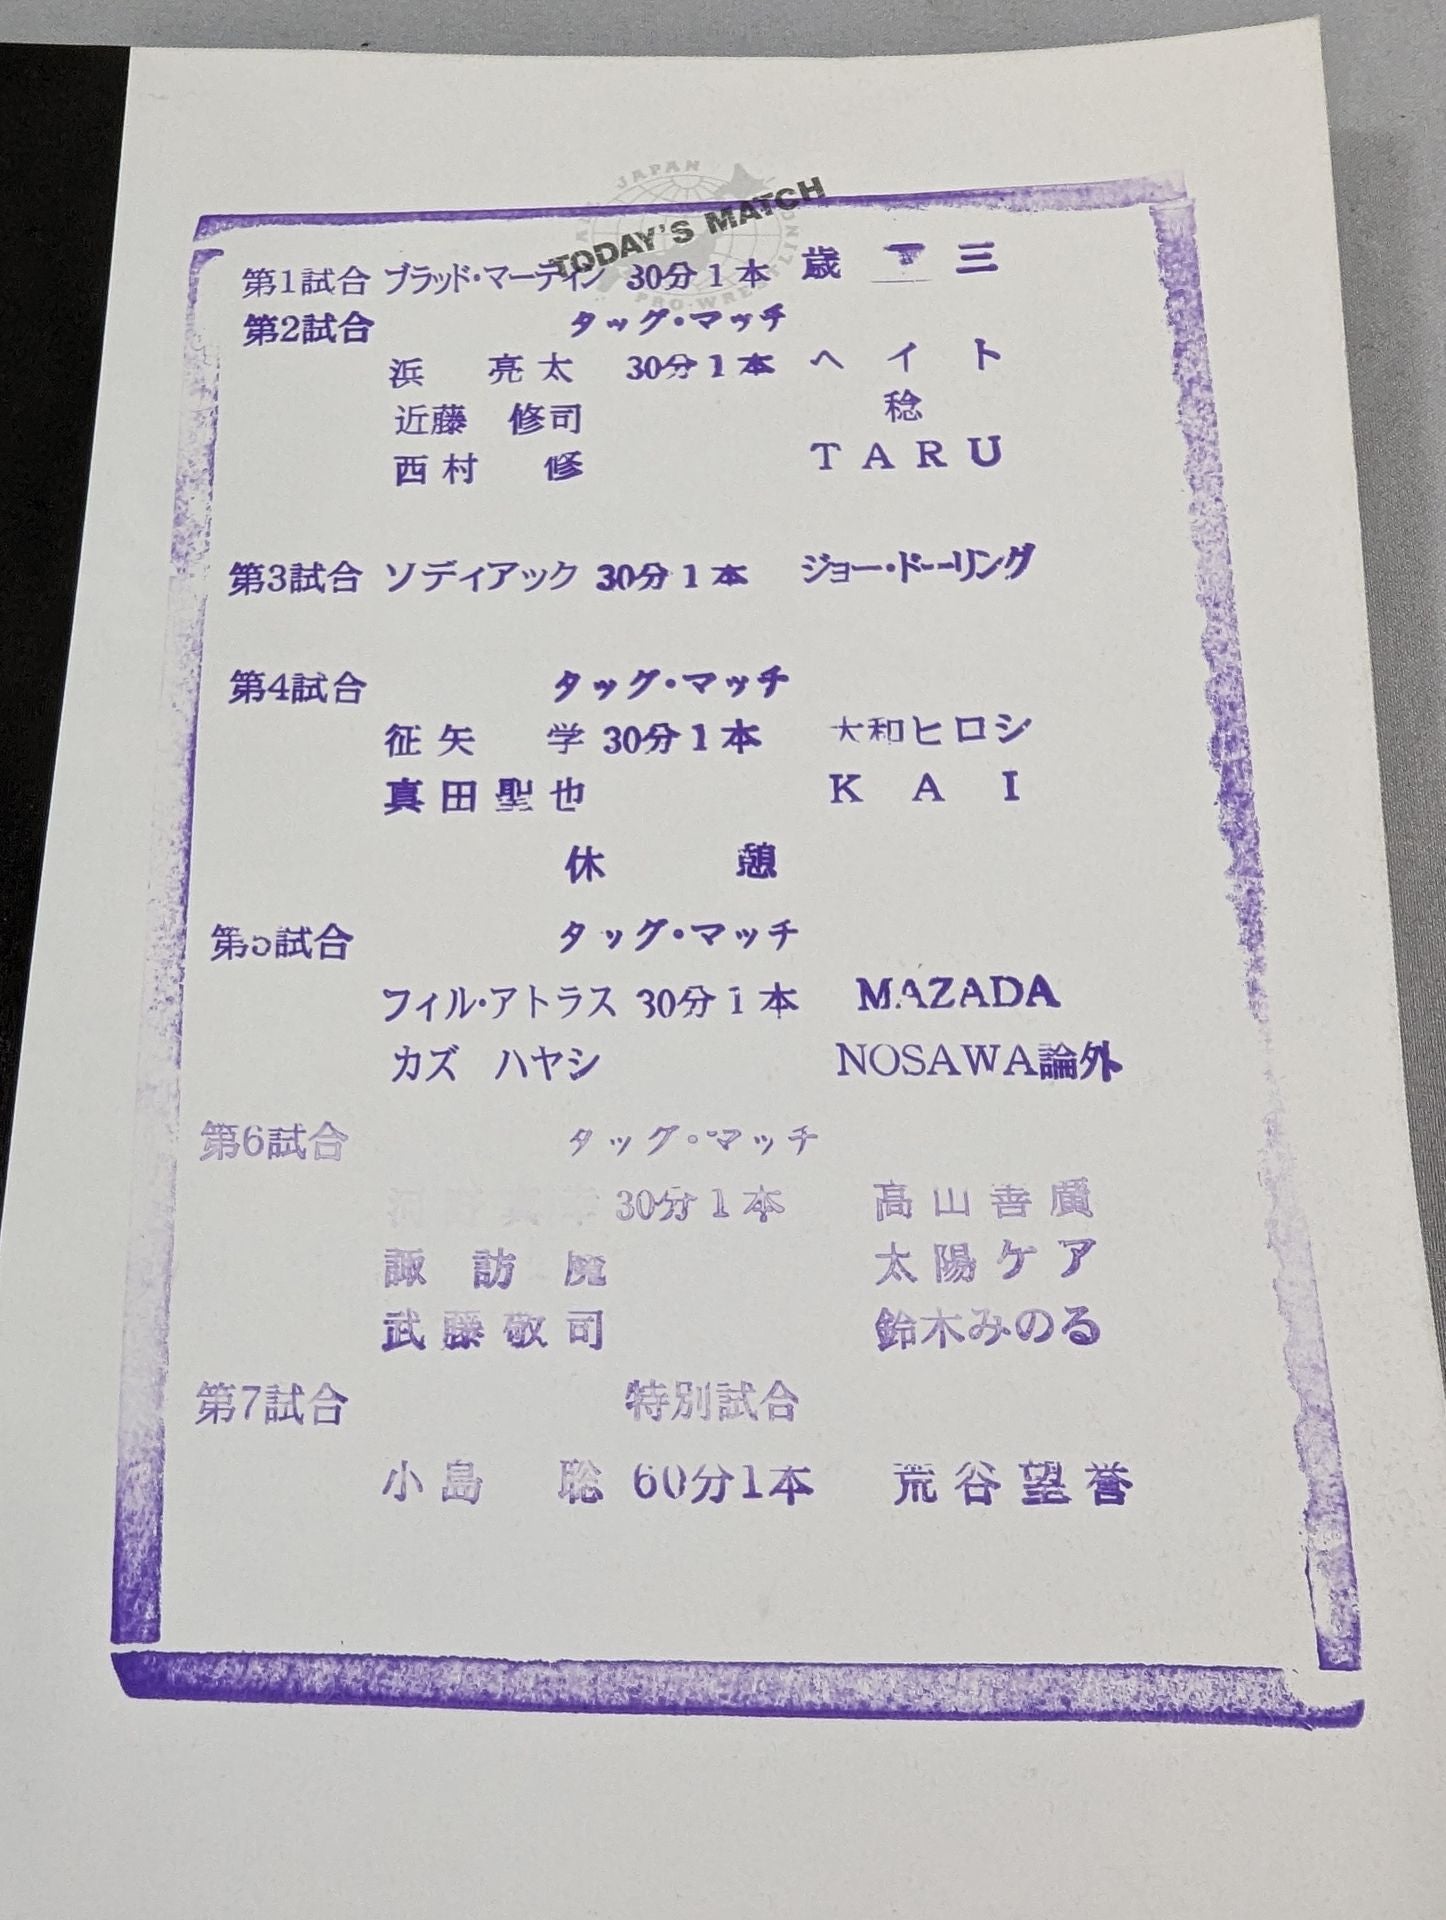 ALL JAPAN PRO-WRESTLING
TODAY'S MATCH
第1試合 ブラッド・マーティン 30分1本 歳 三
第2試合 タッグ・マッチ
浜 亮太 30分1本 ヘイト
近藤 修司 稔
西村 修 TARU
第3試合 ソディアック 30分1本 ジョー・ドーリング
第4試合 タッグ・マッチ
征矢 学 30分1本 大和ヒロシ
真田聖也 KAI
休 憩
第5試合 タッグ・マッチ
フィル・アトラス 30分1本 MAZADA
カズ ハヤシ NOSAWA論外
第6試合 タッグ・マッチ
30分1本 高山善廣
諏訪魔 太陽ケア
武藤敬司 鈴木みのる
第7試合 特別試合
小島 聡 60分1本 荒谷望誉